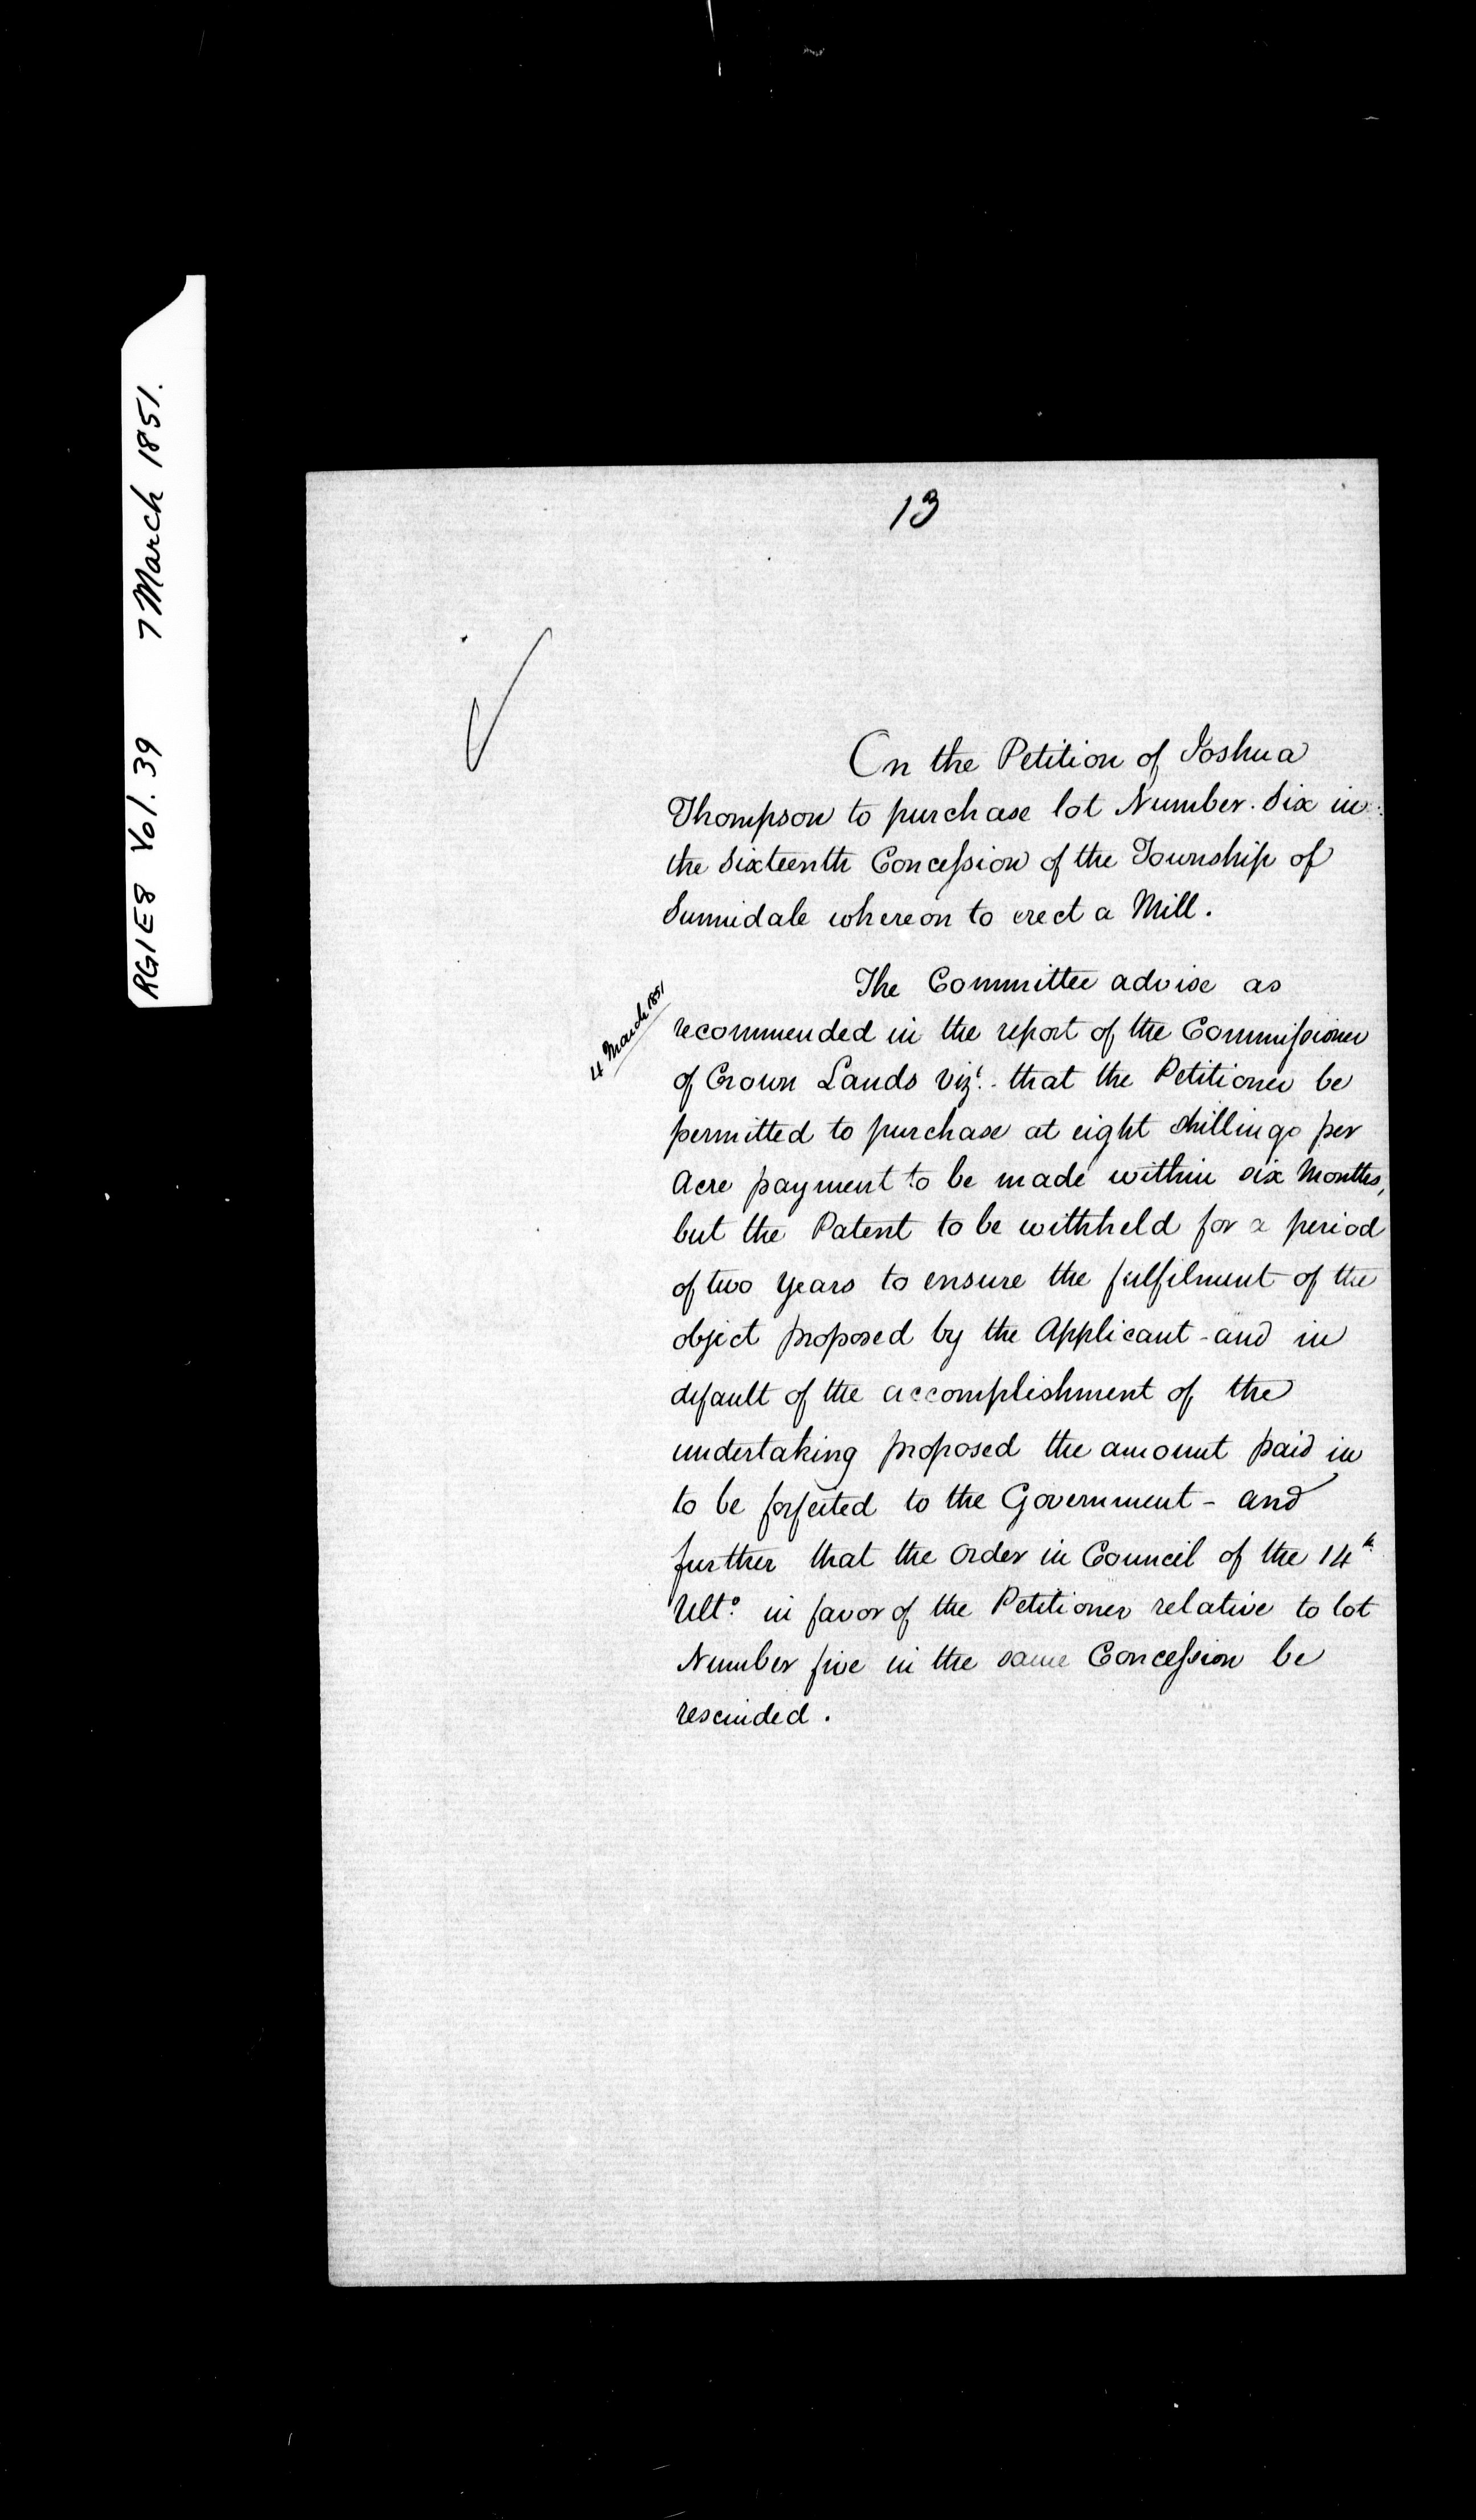 RG1E8 Vol. 39 7 March 1851.
13
On the Petition of Joshua
Thompson to purchase lot Number Six in
the Sixteenth Concession of the Township of
Sunnidale whereon to erect a Mill.
The Committee advise as
4 March 1851
recommended in the report of the Commissioner
of Crown Lands vizt. that the Petitioner be
permitted to purchase at eight shillings per
Acre payment to be made within six Months,
but the Patent to be withheld for a period
of two years to ensure the fulfilment of the
object proposed by the Applicant - and in
default of the accomplishment of the
undertaking proposed the amount paid in
to be forfeited to the Government - and
further that the order in Council of the 14th
Ulto. in favor of the Petitioner relative to lot
Number five in the same Concession be
rescinded.